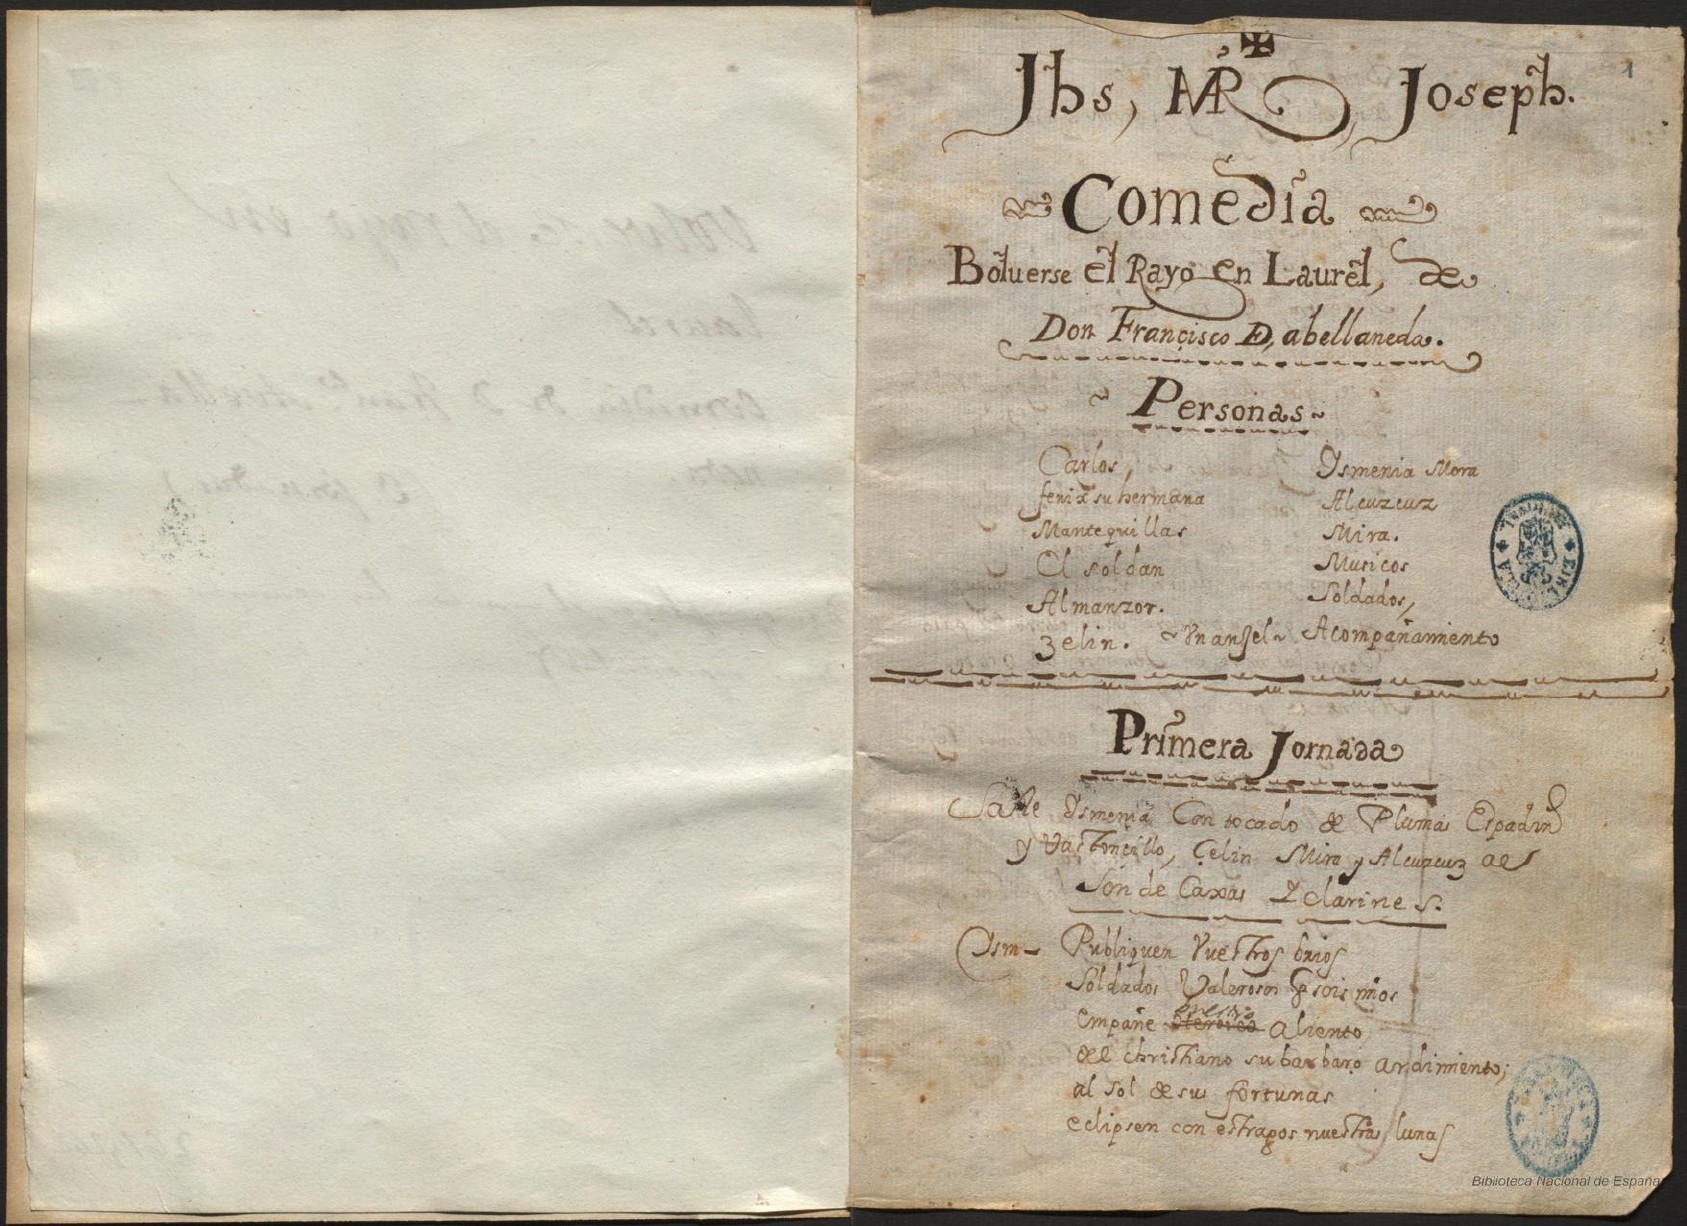 1
Jhs, MR, Joseph.
Comedia
Boluerse el Rayo en Laurel, de
Don Francisco D, abellaneda.
Personas
Carlos,
fenix su hermana
Mantequillas
El soldan
Almanzor.
Zelin.
Vn angel
Ysmenia Mora
Alcuzcuz
Mira.
Musicos
Soldados,
Acompañamiento
Primera Jornada
Sale Ysmenia Con tocado de Plumas Espadin
y Vastoncillo, Çelin Mira y Alcuzcuz al
Son de Caxas Y clarines.
Ysm- Publiquen Vuestros brios
Soldados Valerosos q sois mios
empañe vuestro aliento
del christiano su barbaro ardimiento;
al sol de sus fortunas
eclipsen con estragos nuestras lunas
Biblioteca Nacional de España